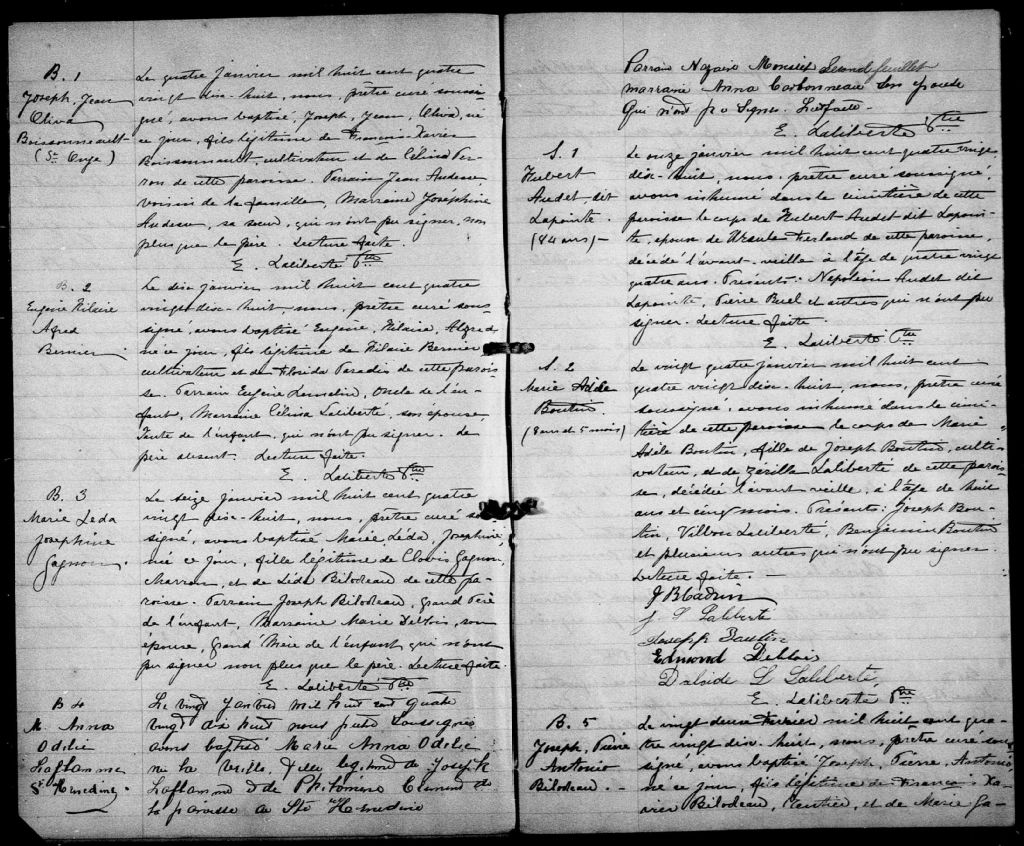 B. 1
Joseph, Jean
Oliva
Boissonneault
(St. Onge)
Le quatre janvier mil huit cent quatre
vingt dix-huit, nous, prêtre curé sousi-
gné, avons baptisé, Joseph, Jean, Oliva, né
ce jour, fils légitime de François Xavier
Boissonnault, cultivateur et de Célina Per-
ron de cette paroisse. Parrain Jean
voisin de la famille, Marraine Joséphine
sa soeur, qui n'ont pu signer, non
plus que le père. Lecture faite.
E. Laliberté Ptre
B. 2
Eugène Hilaire
Alfred
Bernier
Le dix janvier mil huit cent quatre
vingt-dix-huit, nous, prêtre curé sous
signé, avons baptisé Eugène, Hilaire, Alfred,
né ce jour, fils légitime de Hilaire Bernier
cultivateur et de Florida Paradis de cette parois-
se. Parrain Eugène Lemelin, Oncle de l'en-
fant, Marraine Célina Laliberté, son épouse,
Tante de l'enfant, qui n'ont pu signer. Le
père absent. Lecture faite.
E. Laliberté Ptre
B. 3
Marie Léda
Josephine
Gagnon.
Le seize janvier mil huit cent quatre
vingt dix-huit, nous, prêtre curé sous-
signé, avons baptisé Marie Léda, Joséphine,
née ce jour, fille légitime de Clovis Gagnon,
et de Léda Bilodeau de cette pa-
roisse. Parrain Joseph Bilodeau, Grand Père
de l'enfant, Marraine Marie Deblois, son
épouse, Grand'Mère de l'enfant qui n'ont
pu signer non plus que le père. Lecture faite.
E. Laliberté Ptre
B 4
M. Anna
Odilie
Laflamme
St Henedine.
Le vingt janvier mil huit cent quatre
vingt dix huit nous prêtre soussigné
avons baptisé Marie Anna Odilie
née la veille, fille legitime de Joseph
Laflamme & de Philomène
la paroisse de Ste Henedine
Parrain Nazaire Second feuillet
marraine Anna Carbonneau son épouse
Qui n'ont pu signer. Lect faite.
E. Laliberté Ptre
S. 1
Hubert
Audet, dit
Lapointe.
(84 ans) -
Le onze janvier mil huit cent quatre vingt,
dix-huit, nous, prêtre curé soussigné,
avons inhumé dans le cimetière de cette
paroisse le corps de Hubert Audet dit Lapoin-
te, époux de Ursule Ferland de cette paroisse,
décédé l'avant-veille à l'âge de quatre vingt
quatre ans. Présents: Napoléon Audet dit
Lapointe, Pierre Buel et autres qui n'ont pu
signer. Lecture faite.
E. Laliberté Ptre
S. 2
Marie Adèle
Boutin.
(8 ans et 5 mois)
Le vingt quatre janvier mil huit cent
quatre vingt dix-huit, nous, prêtre curé
soussigné, avons inhumé dans le cime-
tière de cette paroisse le corps de Marie
Adèle Boutin, fille de Joseph Boutin, culti-
vateur, et de Zézilla Laliberté de cette parois-
se, décédée l'avant veille, à l'âge de huit
ans et cinq mois. Présents: Joseph Bou-
tin, Villbon Laliberté, Benjamin Boutin
et plusieurs autres qui n'ont pu signer.
Lecture faite. -
J B Cadrin
J. S Laliberté
Joseph Boutin
Edmond Deblois
Dalside L Laliberté,
E. Laliberté Ptre
B. 5
Joseph, Pierre
Antonio
Bilodeau. -
Le vingt deux Fevrier mil huit cent qua-
tre vingt dix-huit, nous, prêtre curé sous
signé, avons baptisé, Joseph, Pierre, Antonio,
né ce jour, fils légitime de François Xa-
vier Bilodeau, rentier, et de Marie Ga-